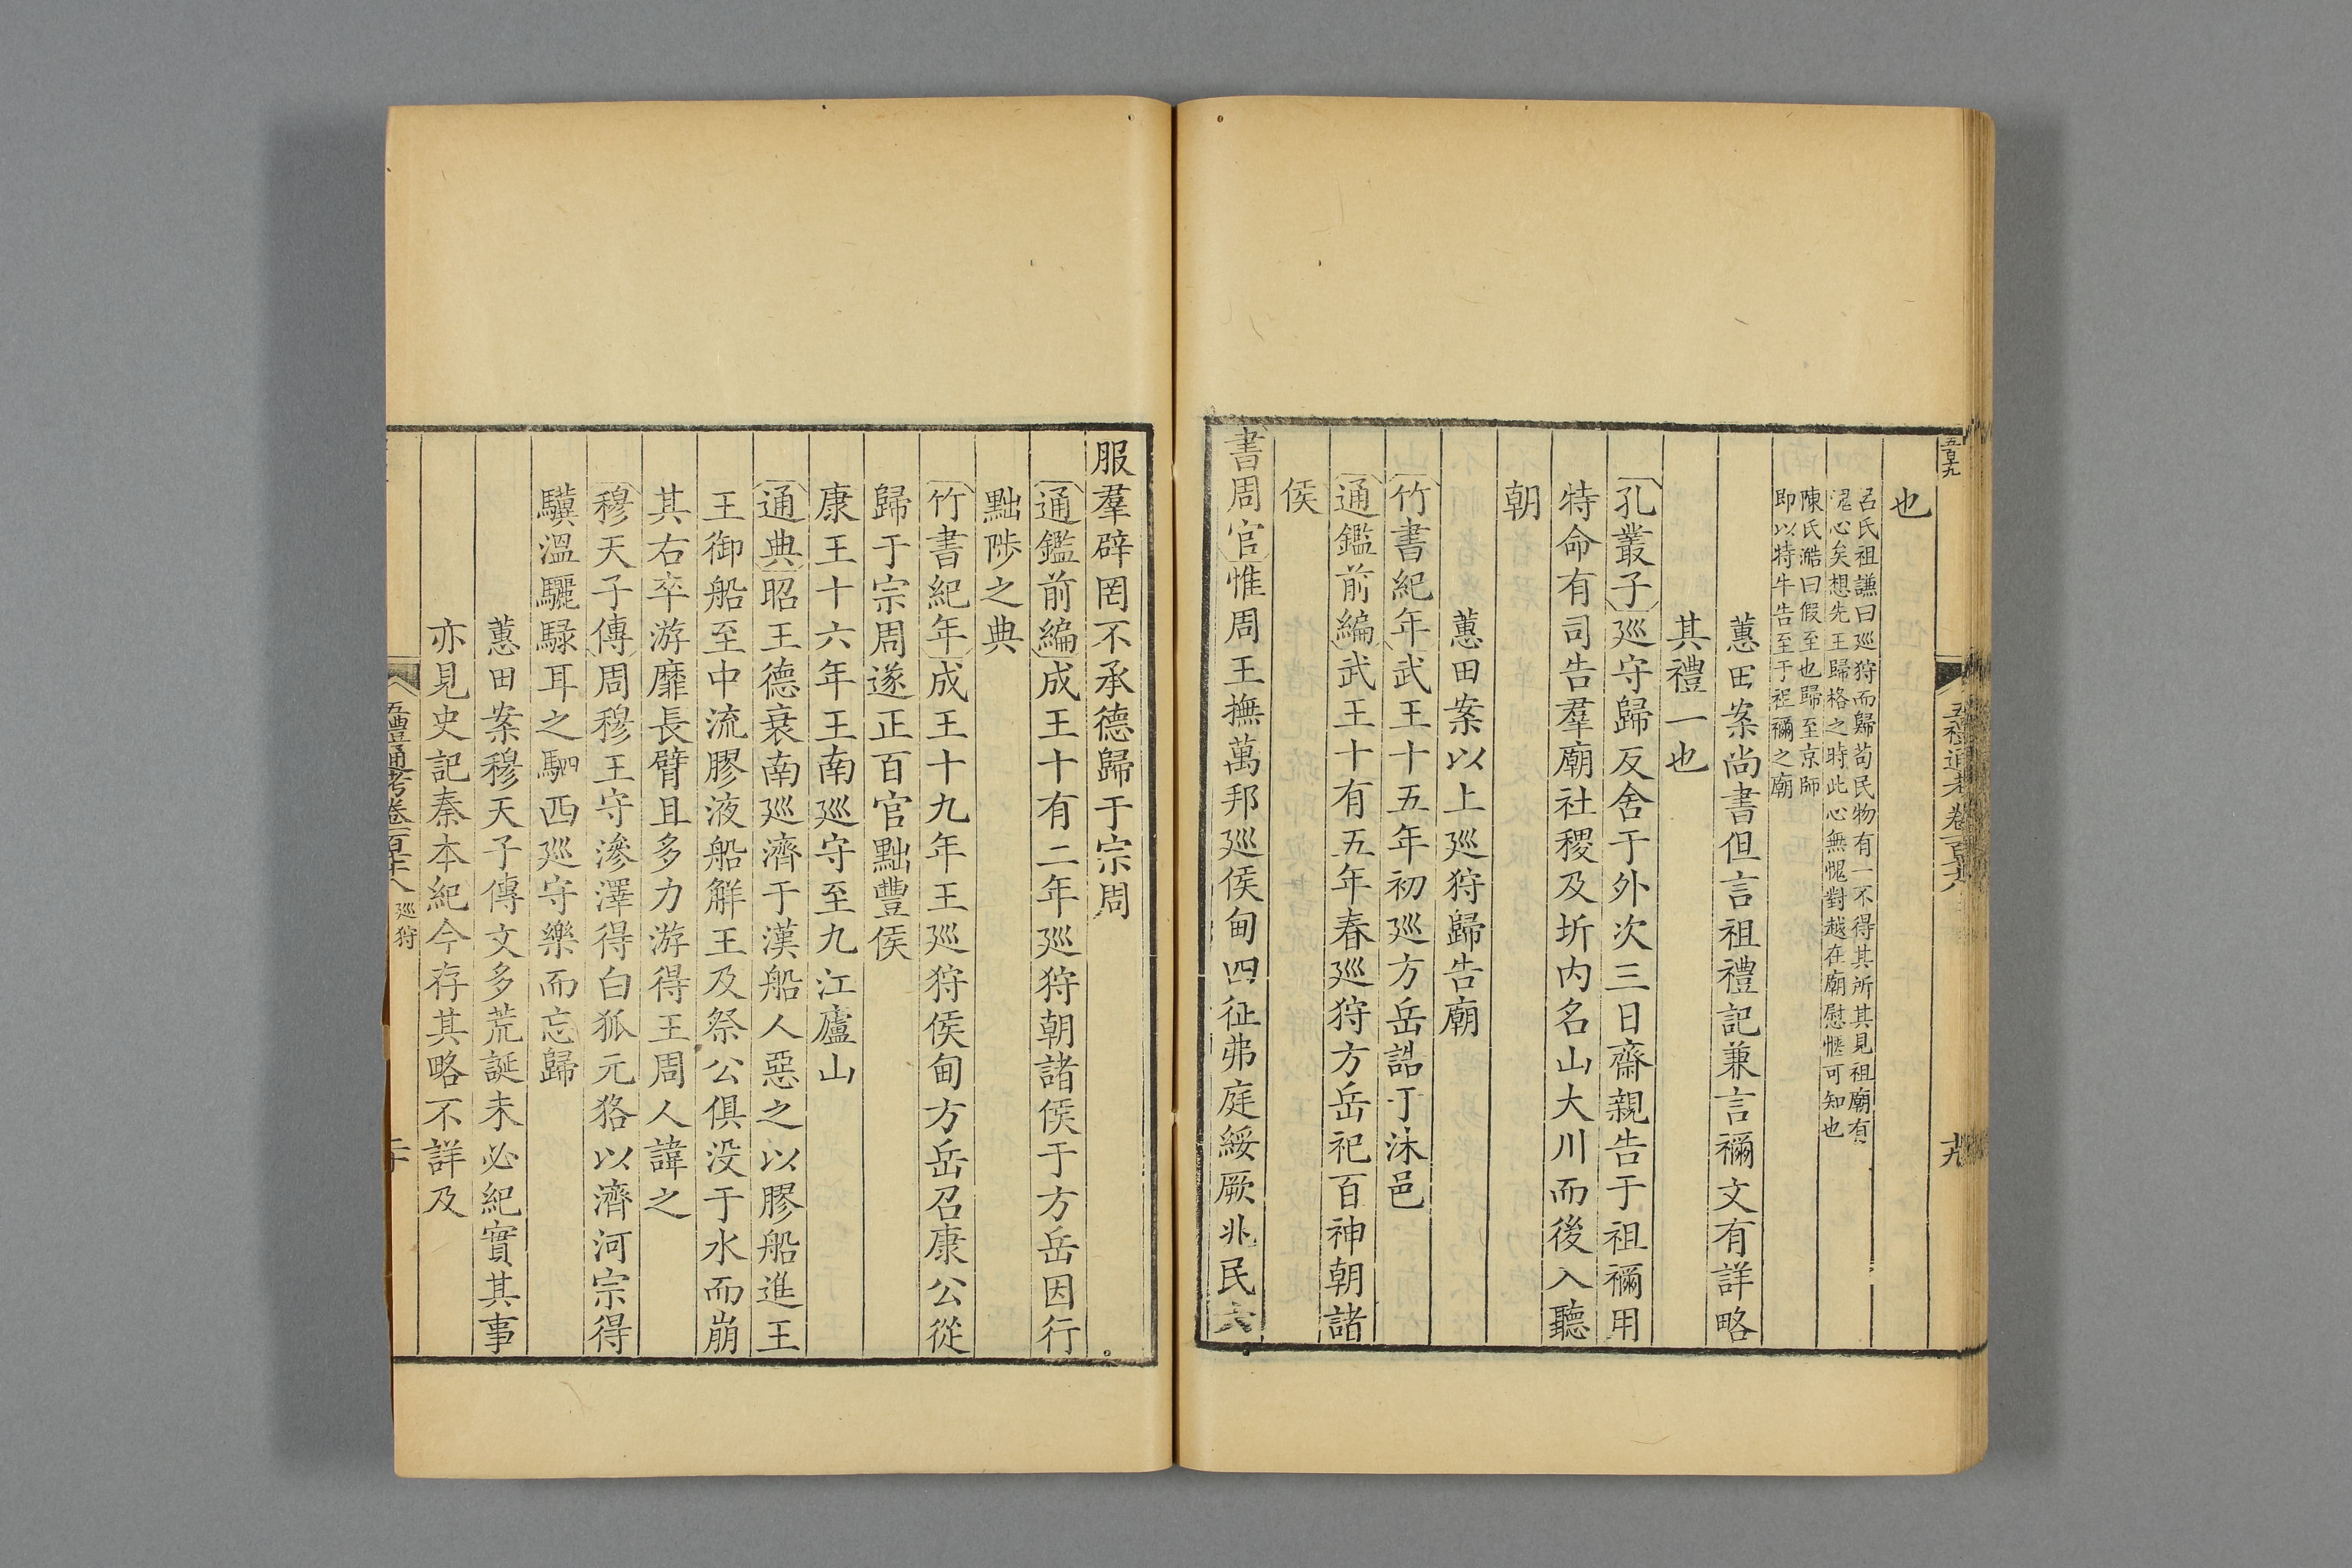 五百九
五禮通考卷一百七十八
十九
也
呂氏祖謙曰巡狩而歸苟民物有一不得其所其見祖廟有
愧心矣想先王歸格之時此心無愧對越在廟慰愜可知也
陳氏澔曰假至也歸至京師
即以特牛告至于祖禰之廟
蕙田案尚書但言祖禮記兼言禰文有詳略
其禮一也
孔叢子巡守歸反舍于外次三日齋親告于祖禰用
特命有司告羣廟社稷及圻内名山大川而後入聽
朝
蕙田案以上巡狩歸告廟
竹書紀年武王十五年初巡方岳誥于沬邑
通鑑前編武王十有五年春巡狩方岳祀百神朝諸
侯
書周官惟周王撫萬邦巡侯甸四征弗庭綏厥兆民六
服羣辟罔不承德歸于宗周
通鑑前編成王十有二年巡狩朝諸侯于方岳因行
黜陟之典
竹書紀年成王十九年王巡狩侯甸方岳召康公從
歸于宗周遂正百官黜豐侯
康王十六年王南巡守至九江廬山
通典昭王德衰南巡濟于漢船人惡之以膠船進王
王御船至中流膠液船解王及祭公俱没于水而崩
其右卒游靡長臂且多力游得王周人諱之
穆天子傳周穆王守滲澤得白狐元狢以濟河宗得
驥溫驪騄耳之駟西巡守樂而忘歸
蕙田案穆天子傳文多荒誕未必紀實其事
亦見史記秦本紀今存其略不詳及
五禮通考卷一百七十八 巡狩